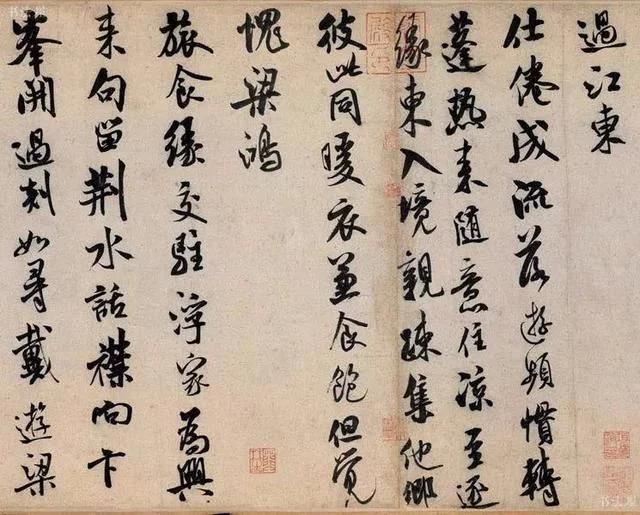 過江東
仕倦成流落遊頻慣轉
蓬熱来隨意住涼至逐
緣東入境親疎集他鄉
彼此同暖衣兼食飽但覺
愧梁鴻
旅食緣交駐浮家為興
来句留荆水話襟向卞
峯開過剡如尋戴遊梁